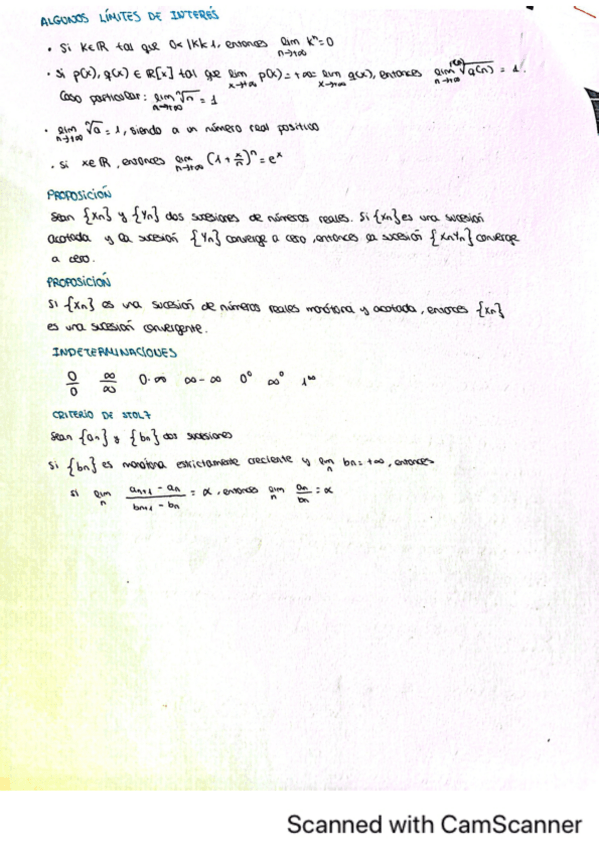 ALGUNOS LÍMITES DE INTERÉS
• Si K∈ℝ tal que 0<|K|<1, entonces lim n→+∞ Kⁿ=0
• Si p(x), q(x) ∈ ℝ[x] tal que lim x→+∞ p(x)=+∞= lim x→+∞ q(x), entonces lim n→+∞ ᵖ⁽ⁿ⁾√q(n) = 1.
Caso particular: lim n→+∞ ⁿ√n = 1
• lim n→+∞ ⁿ√a = 1, siendo a un número real positivo
• si x∈ℝ, entonces lim n→+∞ (1+x/n)ⁿ = eˣ
PROPOSICIÓN
Sean {Xn} y {Yn} dos sucesiones de números reales. Si {xn} es una sucesión
acotada y la sucesión {Yn} converge a cero, entonces la sucesión {XnYn} converge
a cero.
PROPOSICIÓN
Si {Xn} es una sucesión de números reales monótona y acotada, entonces {xn}
es una sucesión convergente.
INDETERMINACIONES
0/0 ∞/∞ 0·∞ ∞-∞ 0⁰ ∞⁰ 1^∞
CRITERIO DE STOLZ
Sean {an} y {bn} dos sucesiones
Si {bn} es monótona estrictamente creciente y lim n bn=+∞, entonces
si lim n (an+1 - an)/(bn+1 - bn) = α, entonces lim n an/bn = α
Scanned with CamScanner